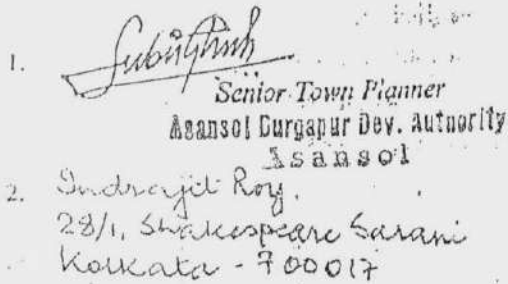 1.
Senior Town Planner
Asansol Durgapur Dev. Autnority
Asansol
2. Indrajit Roy.
28/1, Shakespeare Sarani
Kolkata - 700017